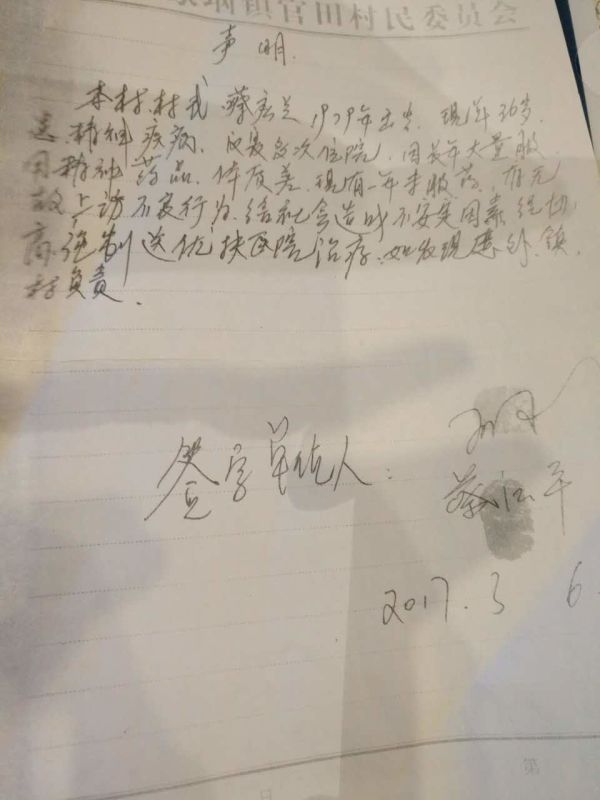 镇官田村民委员会
声明.
本村村民 蔡 1979年出生 现年36岁.
患精神疾病, 多次住院, 因长年大量服
用精神药品, 体质差, 现有一年未服药, 存无
故上访不良行为. 给社会造成不安定因素 经协
商, 强制送优扶医院治疗, 如发现意外, 镇
村负责.
签字单位人:
蔡 平
2017.3 6.
第
日